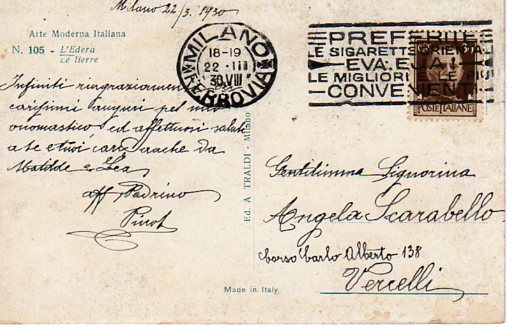 Milano 22/3. 1930
Arte Moderna Italiana
N. 105 - L'Edera
Le lierre
Infiniti ringraziamenti
carissimi auguri pel mio
onomastico, ed affettuosi saluti
a te e tuoi cari anche da
Matilde e Lea
aff. Padrino
Pinot
MILANO
18-19
22 · III
30.VIII
FERROVIA
PREFERITE
LE SIGARETTE ORIENTALI
EVA
LE MIGLIORI LE PIÙ
CONVENIENTI
POSTE ITALIANE
Ed. A TRALDI - Milano
Gentilissima Signorina
Angela Scarabello
Corso Carlo Alberto 138
Vercelli
Made in Italy